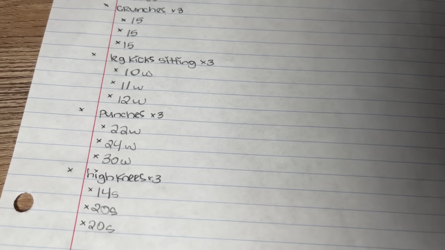 × crunches ×3
× 15
× 15
× 15
× leg kicks sitting ×3
× 10w
× 11w
× 12w
× punches ×3
× 22w
× 24w
× 30w
× high knees ×3
× 14s
× 20s
× 20s